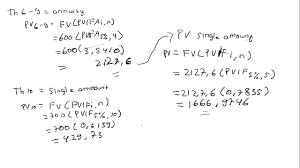 Th 6-9 = annuity
PV6-9 = FV(PVIFAi,n)
= 600(PVIFA5%,4)
= 600(3,5460)
= 2127,6
Th 10 = Single amount
PVn = FV(PVIFi,n)
= 700(PVIF5%,10)
= 700(0,6139)
= 429,73
PV single amount
PV = FV(PVIFi,n)
= 2127,6(PVIF5%,5)
= 2127,6(0,7835)
= 1666,9746